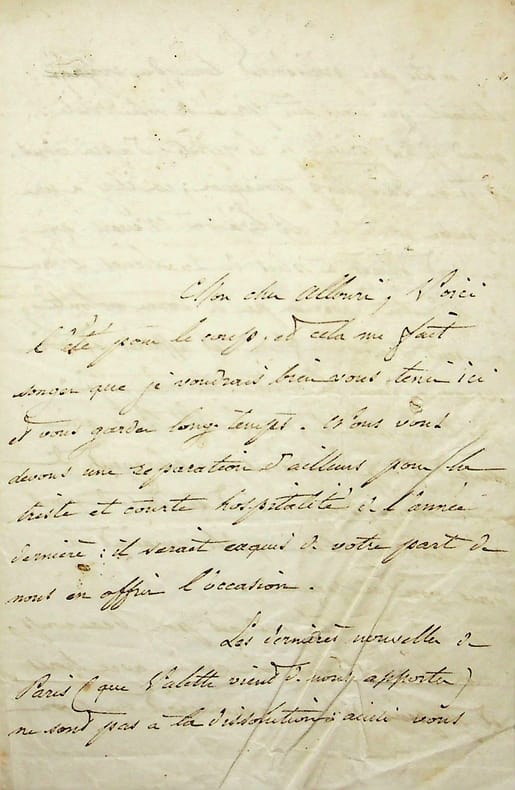 Mon cher Allouri, Voici
l'été pour le coup, et cela me fait
songer que je voudrais bien vous tenir ici
et vous garder long temps. Nous vous
devons une reparation d'ailleurs pour la
triste et courte hospitalité de l'année
dernière : il serait exquis de votre part de
nous en offrir l'occasion.
Les dernières nouvelles de
Paris (que Valette vient de nous apporter)
ne sont pas à la dissolution : ainsi vous